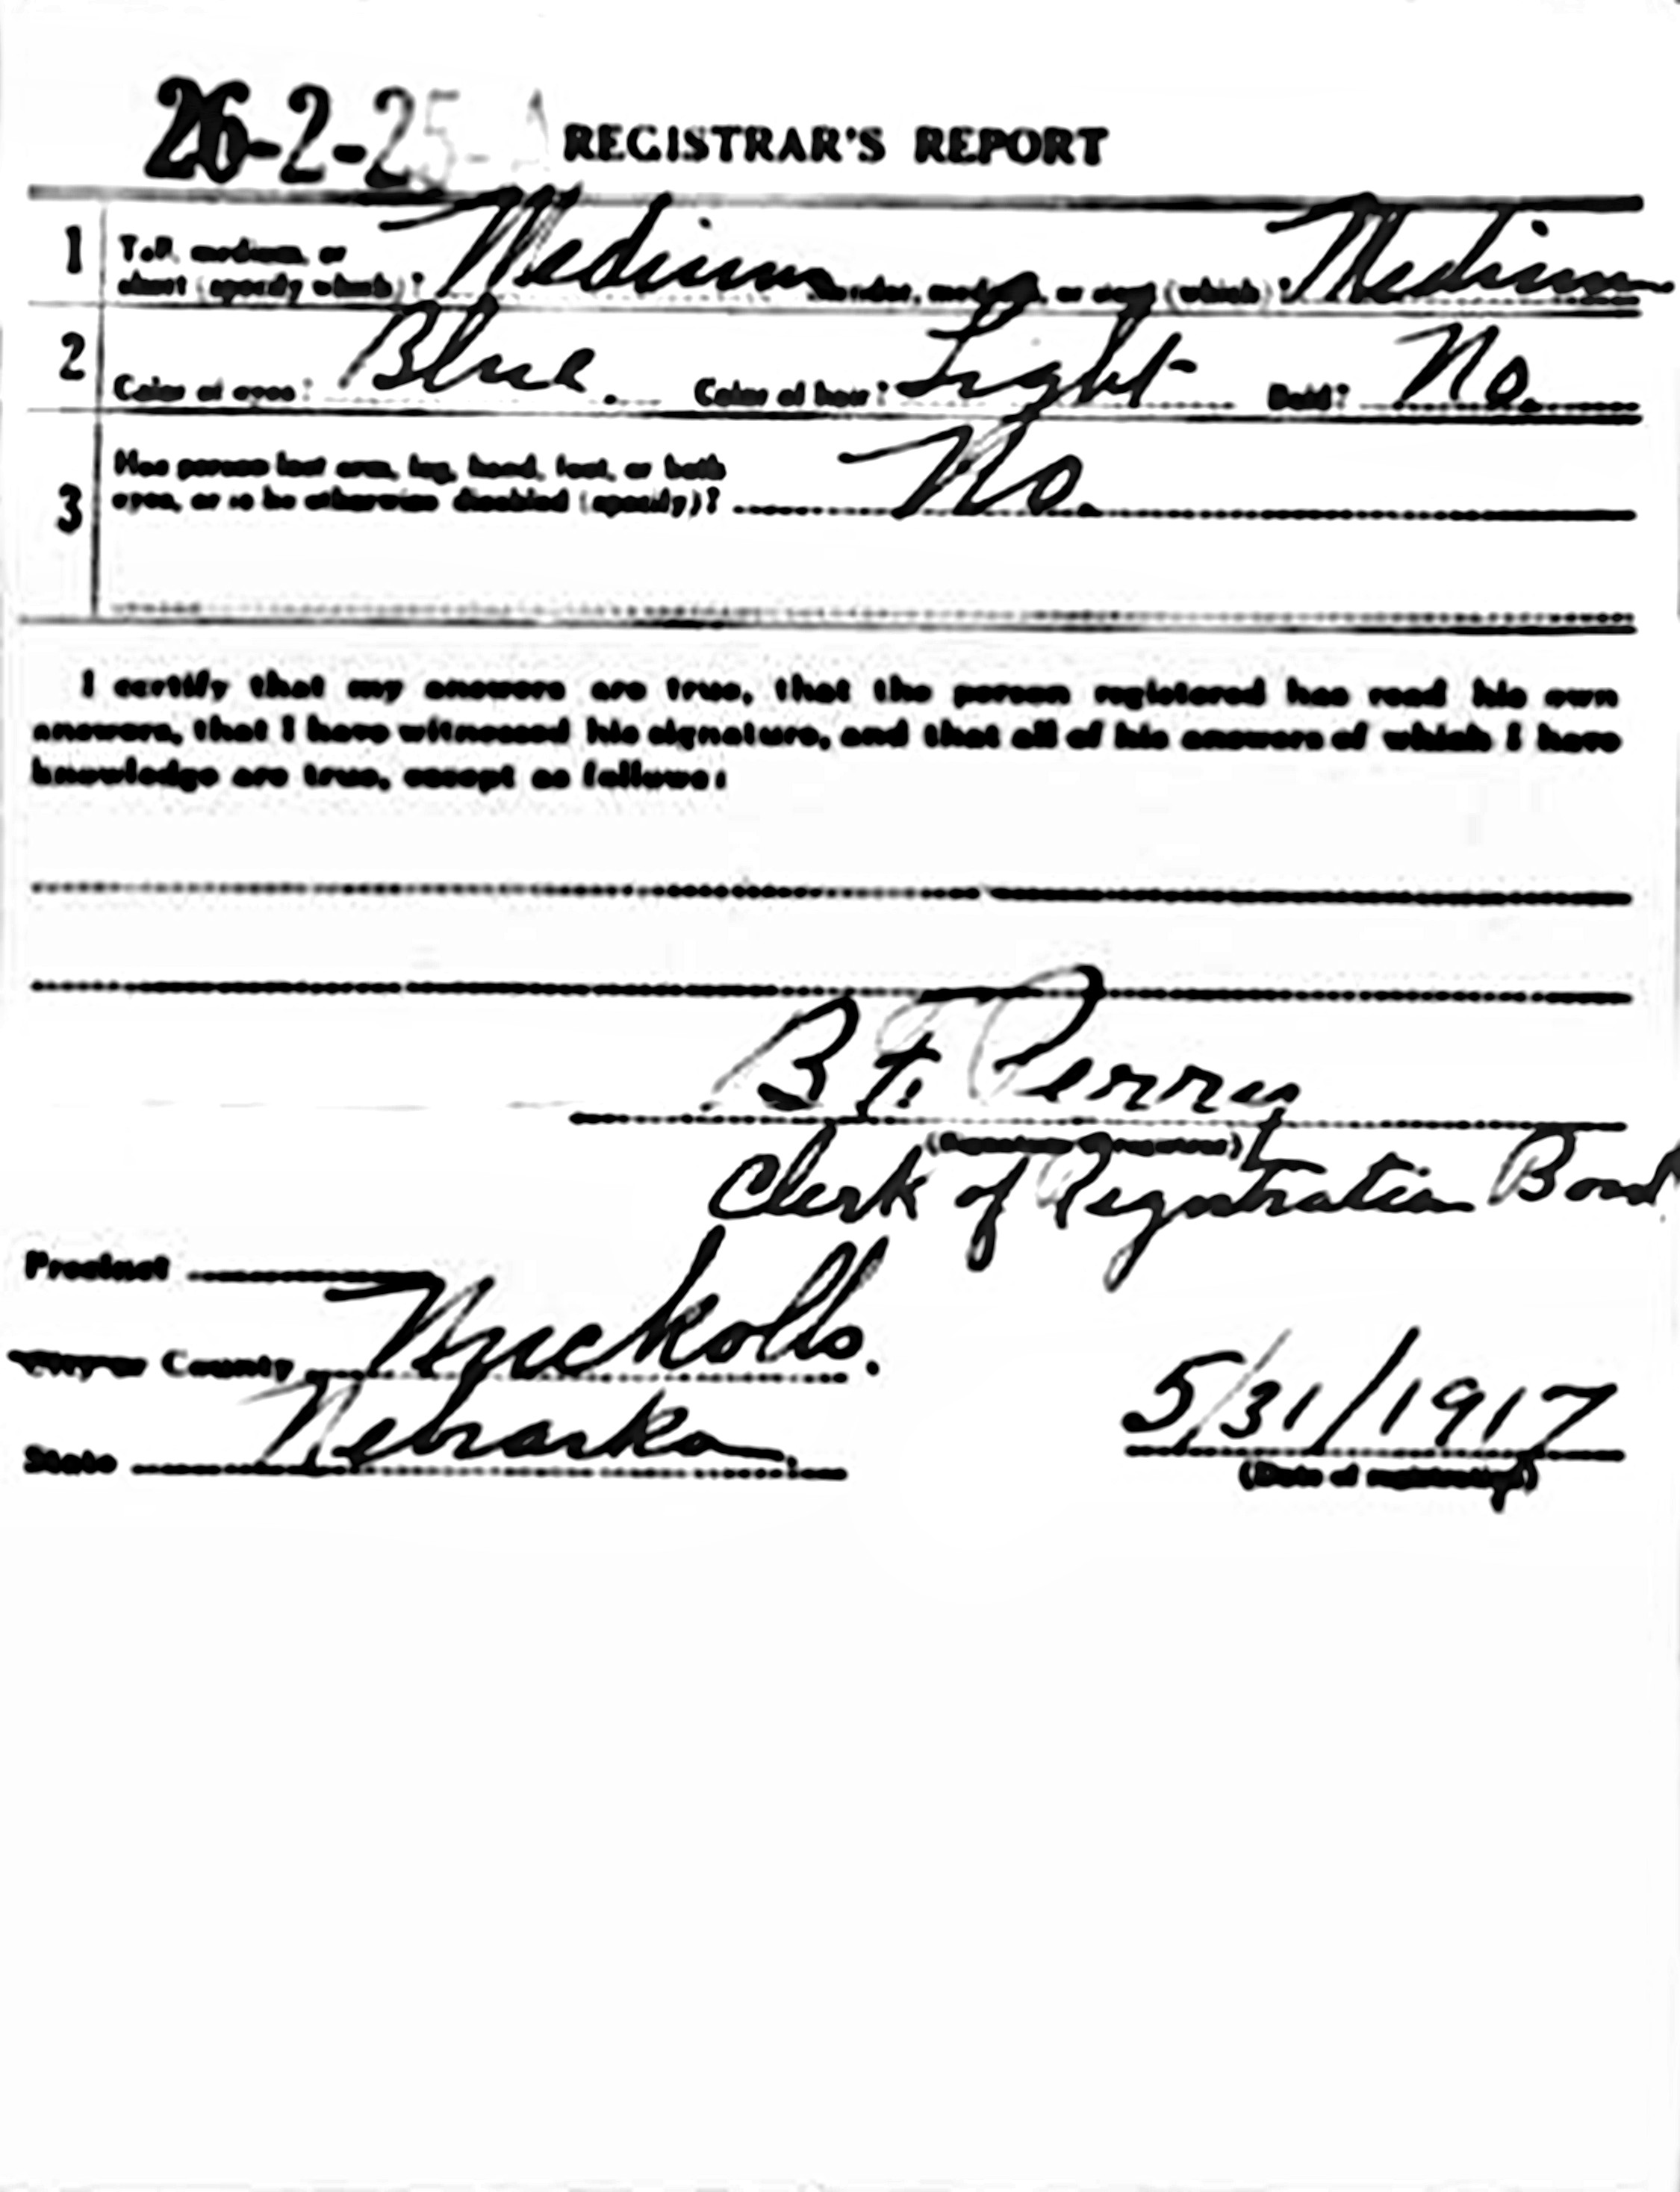 26-2-25-A REGISTRAR'S REPORT
1 Tall, medium, or
short (specify which)? Medium Slender, medium, or stout (which)? Medium
2 Color of eyes? Blue. Color of hair? Light Bald? No.
3 Has person lost arm, leg, hand, foot, or both
eyes, or is he otherwise disabled (specify)? No.
I certify that my answers are true, that the person registered has read his own
answers, that I have witnessed his signature, and that all of his answers of which I have
knowledge are true, except as follows:
B F. Perry
Clerk of Registration Board
Precinct
City or County Nuckolls.
State Nebraska.
5/31/1917
(Date of registration)